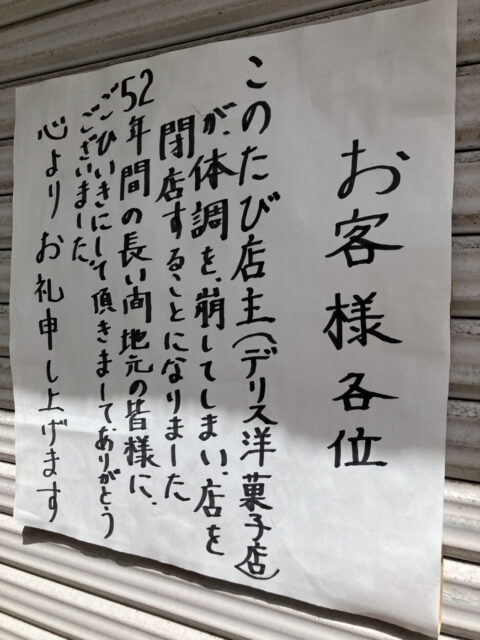 お客様各位
このたび店主(デリス洋菓子店)
が、体調を、崩してしまい、店を
閉店することになりました
52年間の長い間地元の皆様に、
ごひいきにして頂きまして、ありがとう
ございました。
心よりお礼申し上げます